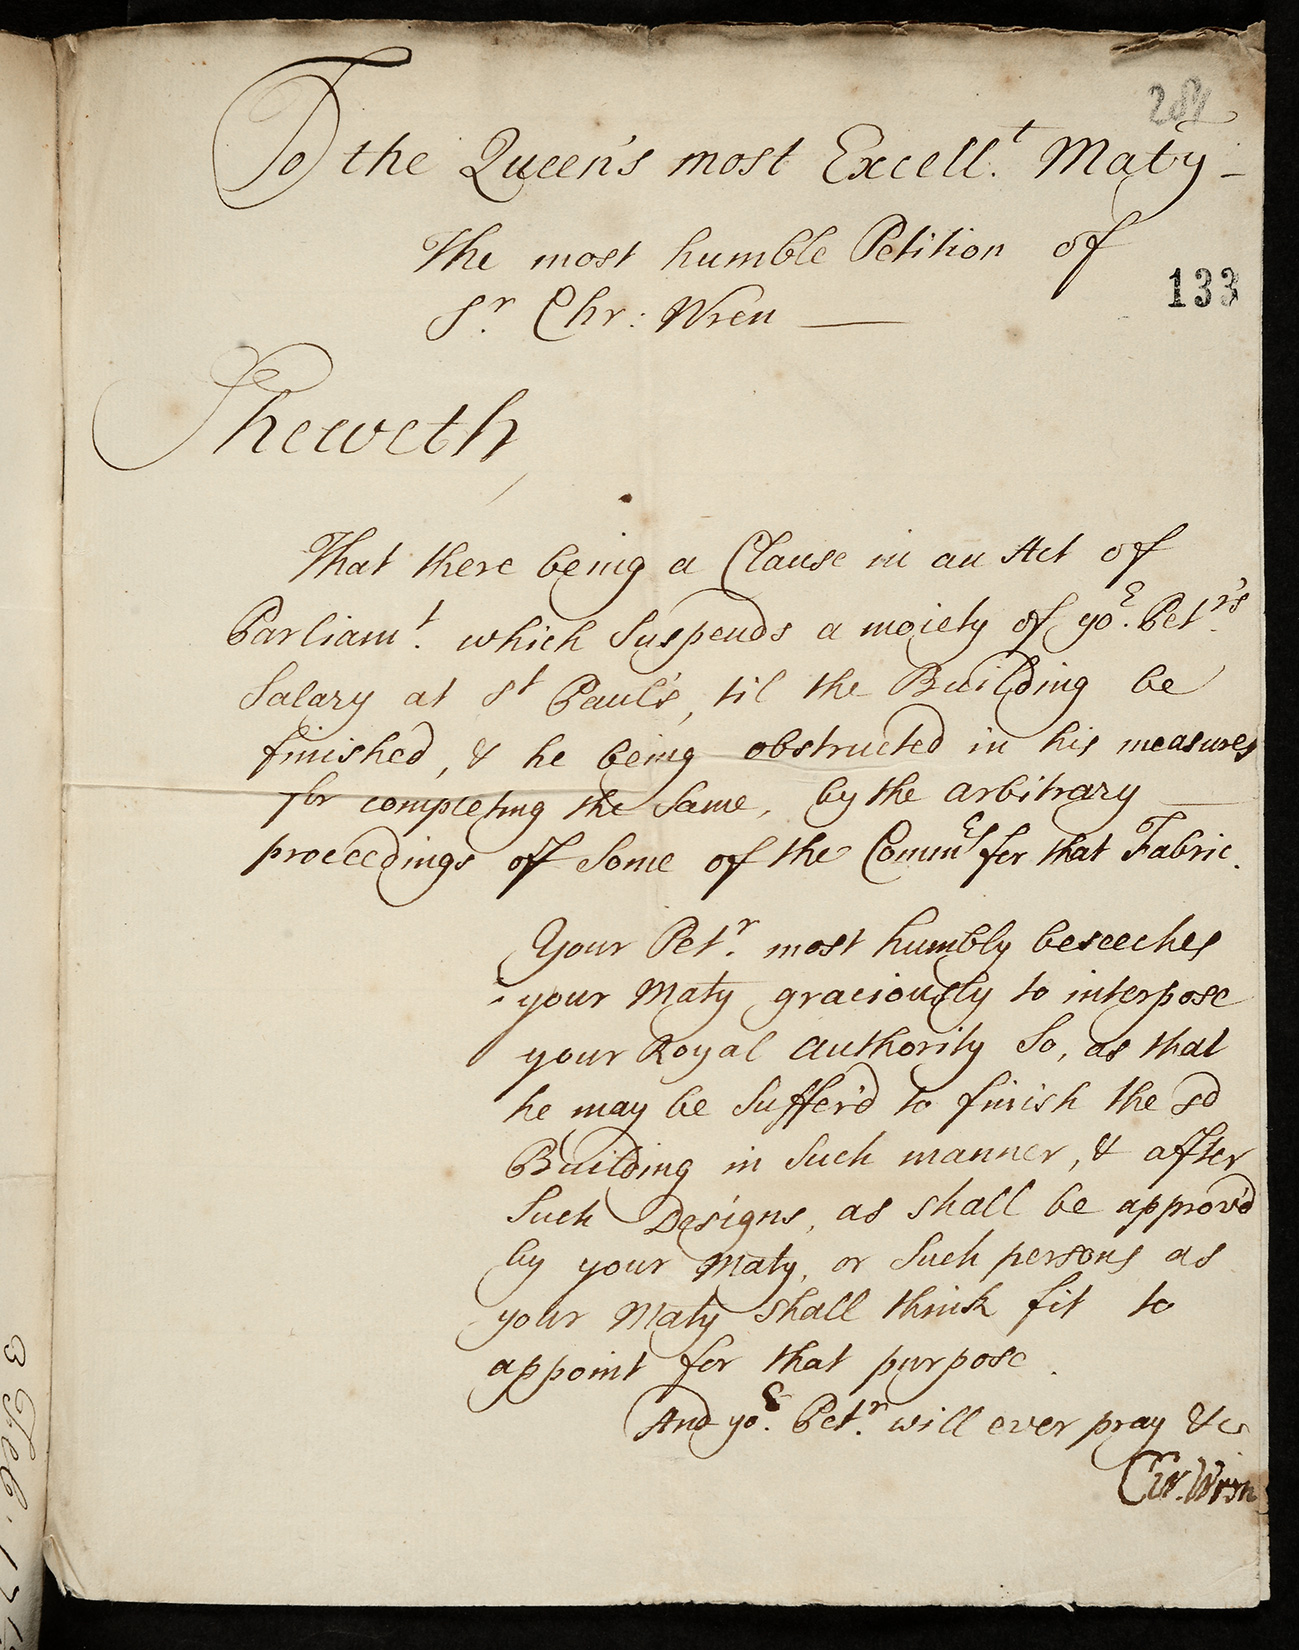 284
To the Queen's most Excell.t Maty
The most humble Petition of
Sr. Chr: Wren
133
Sheweth,
That there being a Clause in an Act of
Parliamt. which Suspends a moiety of yor. Petr's.
Salary at St Paul's, til the Building be
finished, & he being obstructed in his measures
for completing the Same, by the arbitrary
proceedings of Some of the Commrs for that Fabric.
Your Petr. most humbly beseeches
your Maty graciously to interpose
your Royal Authority So, as that
he may be Suffer'd to finish the sd
Building in Such manner, & after
Such Designs, as shall be approv'd
by your Maty, or Such persons as
your Maty shall think fit to
appoint for that purpose.
And yor. Petr. will ever pray &c
Chr. Wren
3 Feb. 171